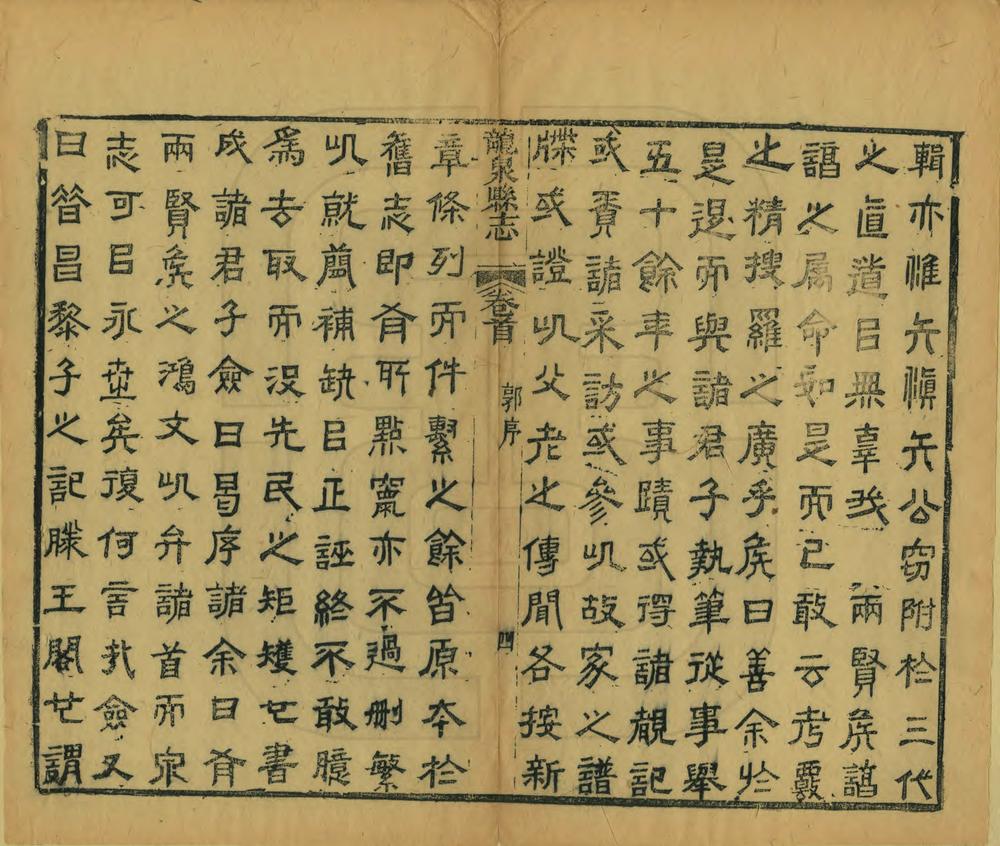 輯亦惟矢愼矢公竊附於三代
之直道㠯無辜我　兩賢矦諄
諄之屬命如是而已敢云考覈
之精搜羅之廣乎矦曰善余於
是退而與諸君子執筆從事舉
五十餘年之事蹟或得諸覩記
或賚諸采訪或參以故家之譜
牒或證以父老之傳聞各按新
龍泉縣志　卷首　郭序　四
章條列而件繫之餘皆原本於
舊志卽有所點竄亦不過刪繁
以就簡補缺㠯正誣終不敢臆
爲去取而沒先民之矩矱也書
成諸君子僉曰曷序諸余曰有
兩賢矦之鴻文以弁諸首而泉
志可㠯永世矣復何言哉僉又
曰昔昌黎子之記滕王閣也謂